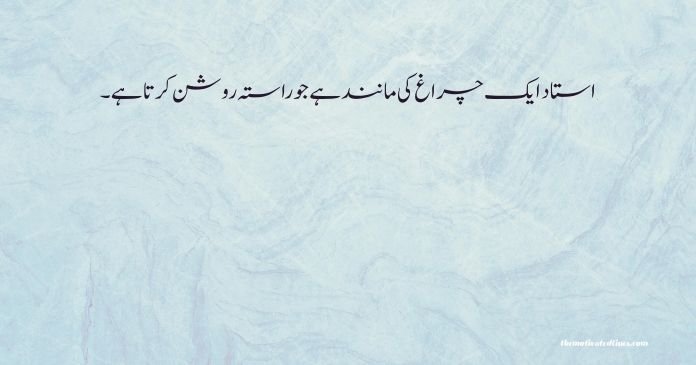 استاد ایک چراغ کی مانند ہے جو راستہ روشن کرتا ہے۔
themotivatedlines.com